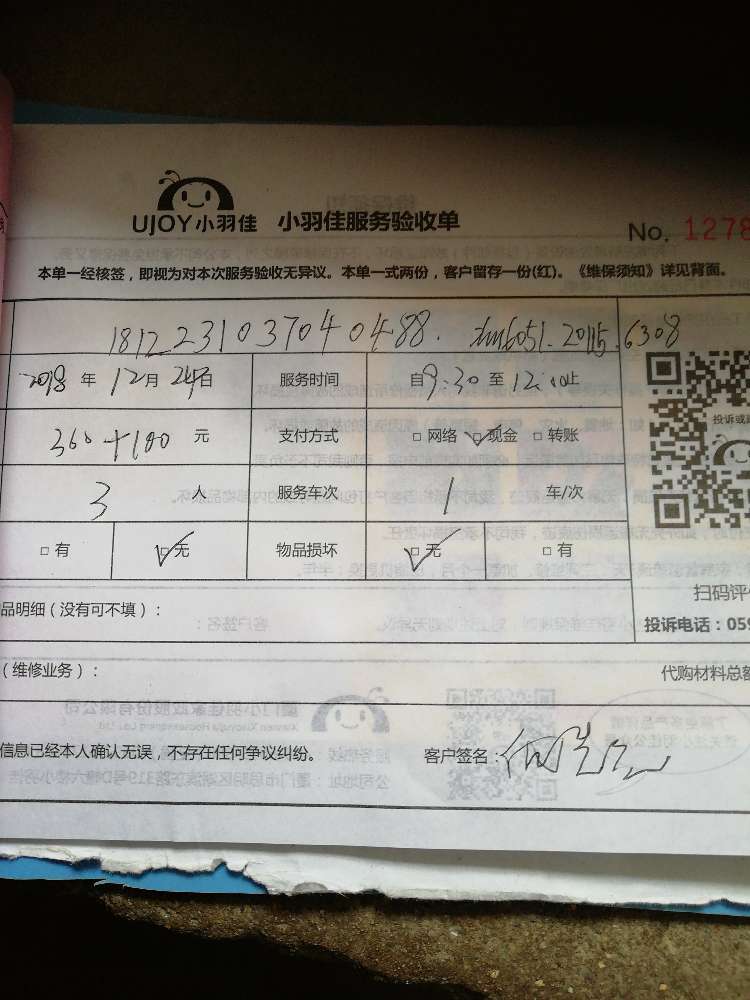 UJOY小羽佳 小羽佳服务验收单
No. 1278
本单一经核签，即视为对本次服务验收无异议。本单一式两份，客户留存一份(红)。《维保须知》详见背面。
1812231037040488.
2018年12月24日 服务时间 自9:30至12:00止
360+100元 支付方式 □网络 ☑现金 □转账
投诉或
3人 服务车次 1车/次
□有 ☑无 物品损坏 ☑无 □有
扫码评
品明细（没有可不填）：
投诉电话：059
（维修业务）： 代购材料总额
信息已经本人确认无误，不存在任何争议纠纷。 客户签名：